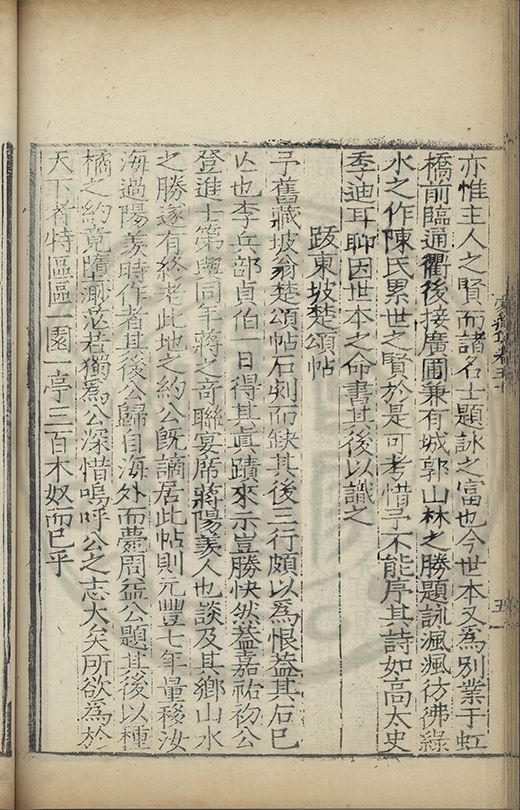 亦惟主人之賢而諸名士題詠之富也今世本又爲別業于虹
橋前臨通衢後接廣圃兼有城郭山林之勝題詠渢渢彷彿綠
水之作陳氏累世之賢於是可考惜予不能序其詩如高太史
季迪耳聊因世本之命書其後以識之
跋東坡楚頌帖
予舊藏坡翁楚頌帖石刻而缺其後三行頗以爲恨蓋其石已
亡也李兵部貞伯一日得其眞蹟來示豈勝快然蓋嘉祐初公
登進士第與同年蔣之奇聯宴席蔣陽羨人也談及其鄉山水
之勝遂有終老此地之約公旣謫居此帖則元豐七年量移汝
海過陽羨時作者其後公歸自海外而薨周益公題其後以種
橘之約竟墮渺茫若獨爲公深惜嗚呼公之志大矣所欲爲於
天下者特區區一園一亭三百木奴而已乎
五